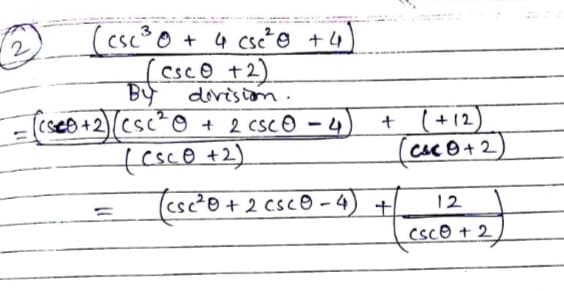 (2) (csc³θ + 4 csc²θ + 4)
(cscθ + 2)
By division.
= (cscθ + 2)(csc²θ + 2 cscθ - 4) + (+12)
(cscθ + 2) (cscθ + 2)
= (csc²θ + 2 cscθ - 4) + ( 12
cscθ + 2 )